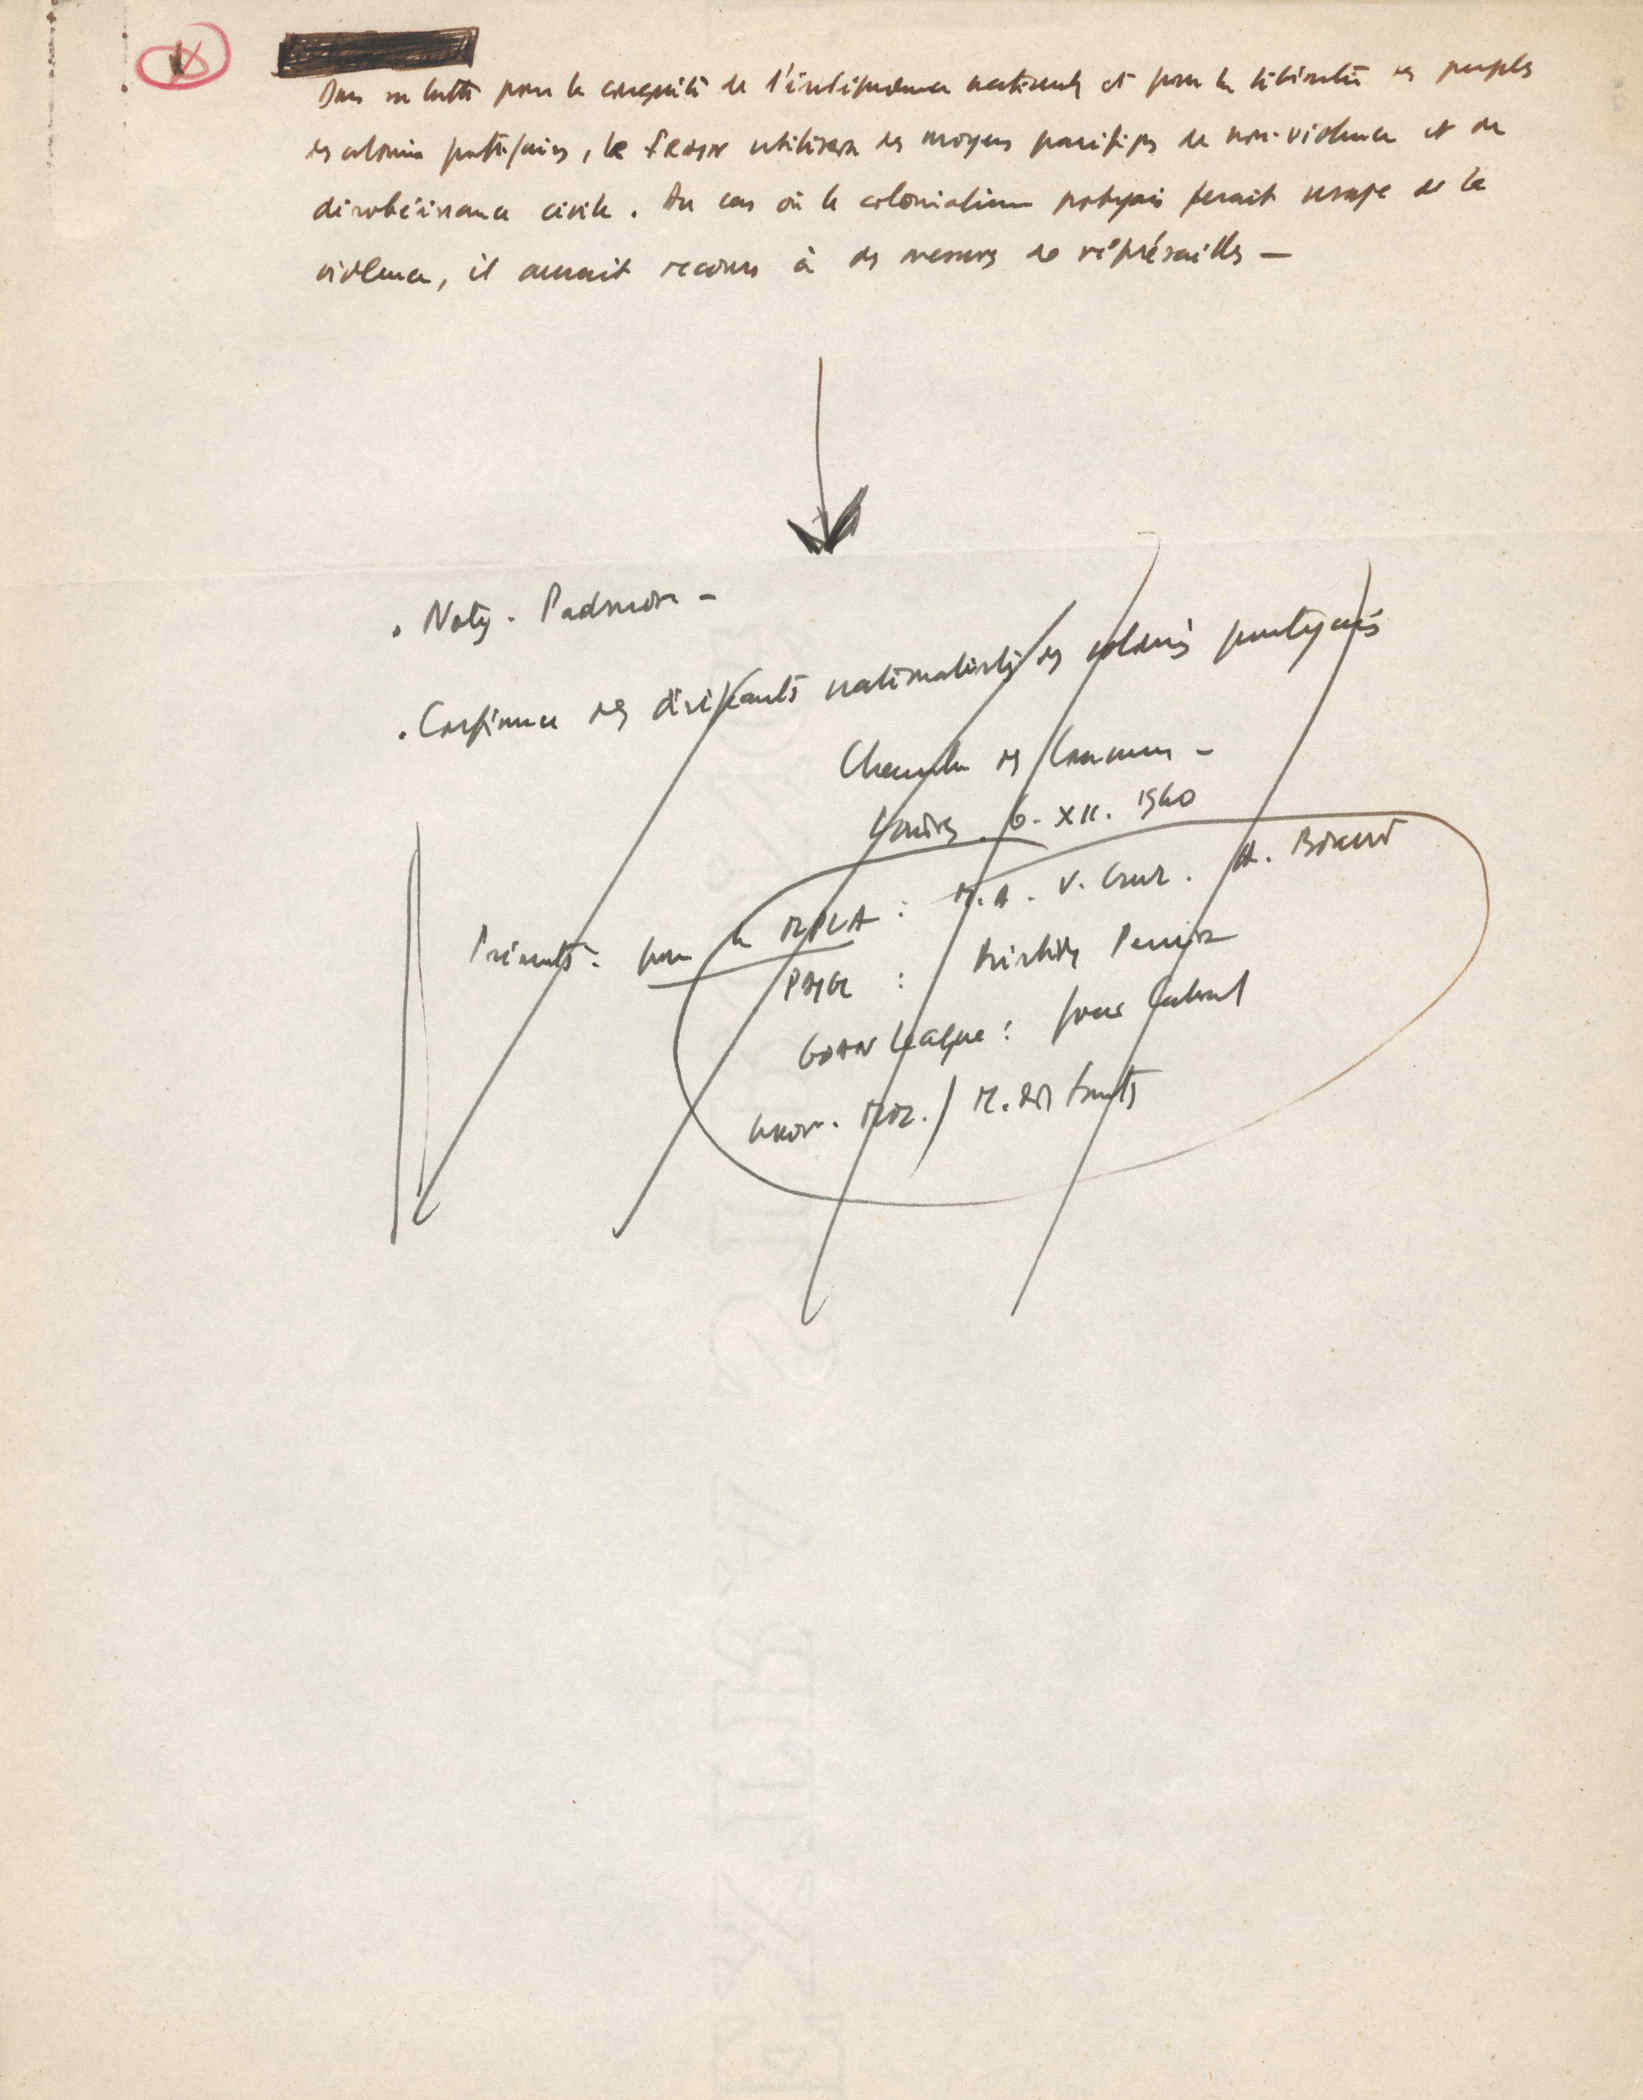 Dans sa lutte pour la conquête de l'indépendance nationale et pour la libération des peuples
des colonies portugaises, le FRAIN utilisera des moyens pacifiques de non-violence et de
désobéissance civile. Au cas où le colonialisme portugais ferait usage de la
violence, il aurait recours à des mesures de représailles —
. Notes. Padmore —
. Conférence des dirigeants nationalistes des colonies portugaises
Chambre des Communes —
Londres. 6. XII. 1960
Présents. pour le MPLA : M.A. V. Cruz. A. Bδ
PAIGC : Aristides Pereira
GOAN League : João Cabral
MOZ. / M. dos Santos